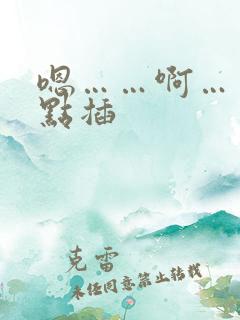 嗯……啊…
點插
克雷
未经同意禁止转载